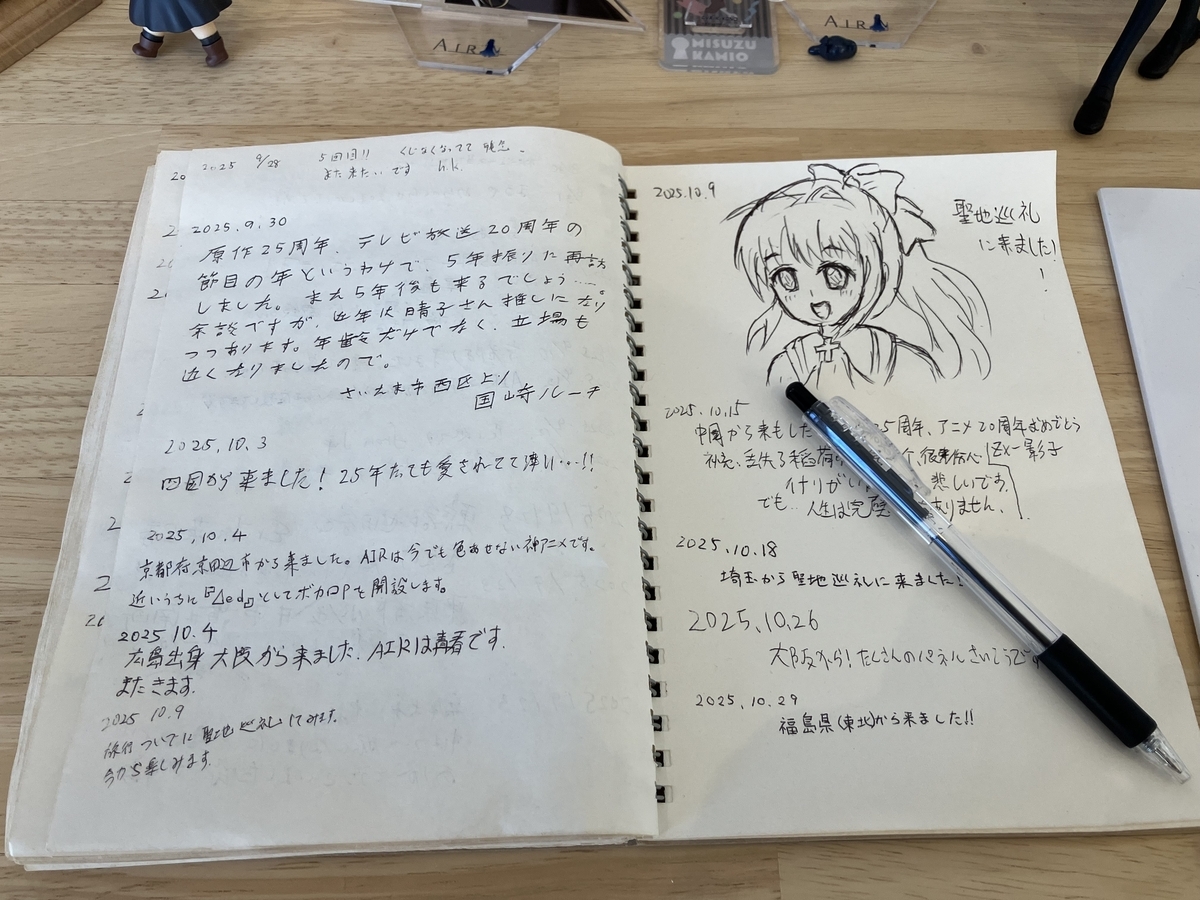 AIR
MISUZU
KAMIO
AIR
2025 9/28 5回目!! くじなくなってて残念。
また来たいです h.k.
2025.9.30
原作25周年、テレビ放送20周年の
節目の年というわけで、5年振りに再訪
しました。また5年後も来るでしょう……。
余談ですが、近年は晴子さん推しになり
つつあります。年齢だけでなく、立場も
近くなりましたので。
さいたま市西区より
国崎ルーチ
2025.10.3
四国から来ました！25年たても愛されてて凄い…!!
2025.10.4
京都府京田辺市から来ました。AIRは今でも色あせない神アニメです。
近いうちに『⊿ed』としてボカロPを開設します。
2025 10.4
広島出身 大阪から来ました。AIRは青春です。
またきます。
2025 10.9
旅行ついでに聖地巡礼してみます。
今から楽しみます。
2025.10.9
聖地巡礼
に来ました!
!
2025.10.15
中国から来もした 5周年、アニメ20周年おめでとう
丢失る稻荷
イナリがい 悲しいです。
でも… 人生は完璧 ありません、
2025.10.18
埼玉から聖地巡礼に来ました!
2025.10.26
大阪から! たくさんのパネルさいこうで
2025.10.29
福島県(東北)から来ました!!